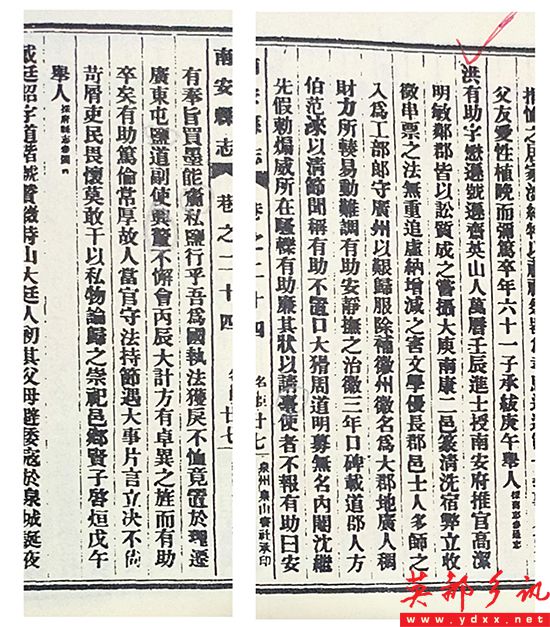 父友愛性植晚而彌篤卒年六十一子承紱庚午舉人
洪有助字懋遜號遜齊英山人萬曆壬辰進士授南安府推官高潔
明敏鄰郡皆以訟質成之嘗攝大庾南康二邑篆清洗宿弊立收
徵串票之法無重追虛納增減之害文學優長郡邑士人多師之
入爲工部郎守廣州以艱歸服除補徽州徽名爲大郡地廣人稠
財力所競易動難調有助安靜撫之治徽三年口碑載道郡人方
伯范淶以清節聞稱有助不置口大猾周道明募無名內閣沈繼
先假勅煽威所在騷轢有助廉其狀以請臺使者不報有助曰安
南安縣志 卷之二十四 廿七 泉州泉山書社承印
南安縣志 卷之二十四 廿七
有奉旨買墨能鬻私鹽行乎吾爲國執法獲戾不恤竟置於理遷
廣東屯鹽道副使興釐不懈會丙辰大計方有卓異之旌而有助
卒矣有助篤倫常厚故人當官守法持節遇大事片言立決不尙
苛屑吏民畏懷莫敢干以私物論歸之崇祀邑鄉賢子啓烜戊午
舉人
詩山大庭人初其父母避倭寇於泉城誕夜
英都乡讯
www.ydxx.net